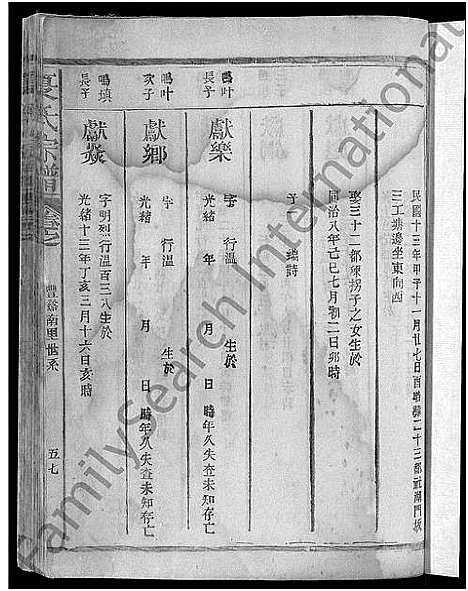 民國十三年甲子十一月廿七日酉時葬二十三都社湖門坂
三工塘邊坐東向西
娶三十二都陳拐子之女生於
同治八年己巳七月初二日卯時
子一 瑞詩
鳴叶
長子
獻樂
字 行溫 生於
光緒 年 月 日 時年久失查未知存亡
鳴叶
次子
獻鄉
字 行溫 生於
光緒 年 月 日 時年久失查未知存亡
鳴填
長子
獻焱
字明烈行溫百三八生於
光緒十三年丁亥三月十六日亥時
夏氏宗譜
世系
五七
FamilySearch International